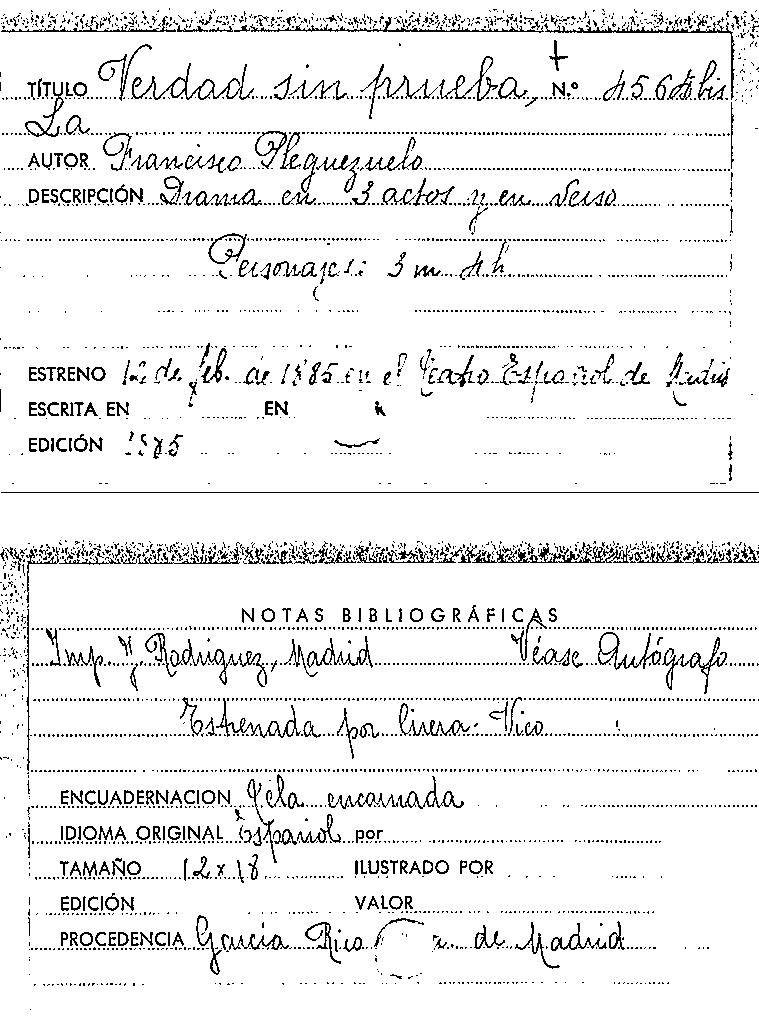 TÍTULO Verdad sin prueba, N.º 4564 bis
La
AUTOR Francisco Pleguezuelo
DESCRIPCIÓN Drama en 3 actos y en verso
Personajes: 3 m 4 h
ESTRENO 12 de feb. de 1885 en el Teatro Español de Madrid
ESCRITA EN EN
EDICIÓN 1885
NOTAS BIBLIOGRÁFICAS
Imp. Rodriguez, Madrid Véase Autógrafo
Estrenada por Vico
ENCUADERNACION Tela encarnada
IDIOMA ORIGINAL Español por
TAMAÑO 12 x 18 ILUSTRADO POR
EDICIÓN VALOR
PROCEDENCIA García Rico de Madrid